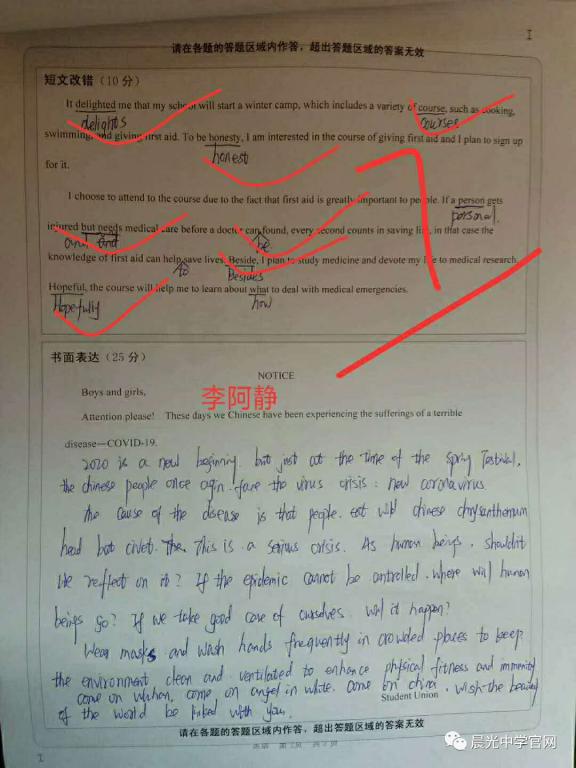 请在各题的答题区域内作答，超出答题区域的答案无效
短文改错（10 分）
It delighted me that my school will start a winter camp, which includes a variety of course, such as cooking,
delights
courses
swimming, and giving first aid. To be honesty, I am interested in the course of giving first aid and I plan to sign up
honest
for it.
I choose to attend to the course due to the fact that first aid is greatly important to people. If a person gets
personal
injured but needs medical care before a doctor can found, every second counts in saving life, in that case the
and
be
knowledge of first aid can help save lives. Beside, I plan to study medicine and devote my life to medical research.
to
Besides
Hopeful, the course will help me to learn about what to deal with medical emergencies.
Hopefully
how
书面表达（25 分）
NOTICE
李阿静
Boys and girls,
Attention please! These days we Chinese have been experiencing the sufferings of a terrible
disease—COVID-19.
2020 is a new beginning. but just at the time of the Spring Festival,
the chinese people once agin fare the virus crisis: new coronavirus.
the cause of the disease is that people. eat wild chinese chrysanthemum
head bat civet. The. This is a serious crisis. As human beings. shouldn't
we reflect on it? If the epidemic cannot be controlled. where will human
beings go? If we take good care of ourselves. will it happen?
Wear masks and wash hands frequently in crowded places to keep
the environment clean and ventilated to enhance physical fitness and immunity
come on wuhan, come on angel in white. come on china. wish the beauty
Student Union
of the world be linked with you.
请在各题的答题区域内作答，超出答题区域的答案无效
晨光中学官网